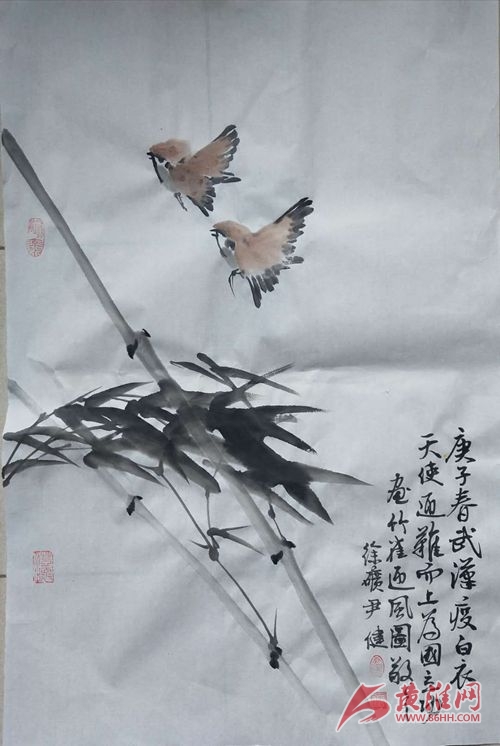 庚子春武漢疫白衣
天使迎難而上為國之
畫竹雀迎風圖敬
徐礦尹健
黄淮网
WWW.86HH.COM